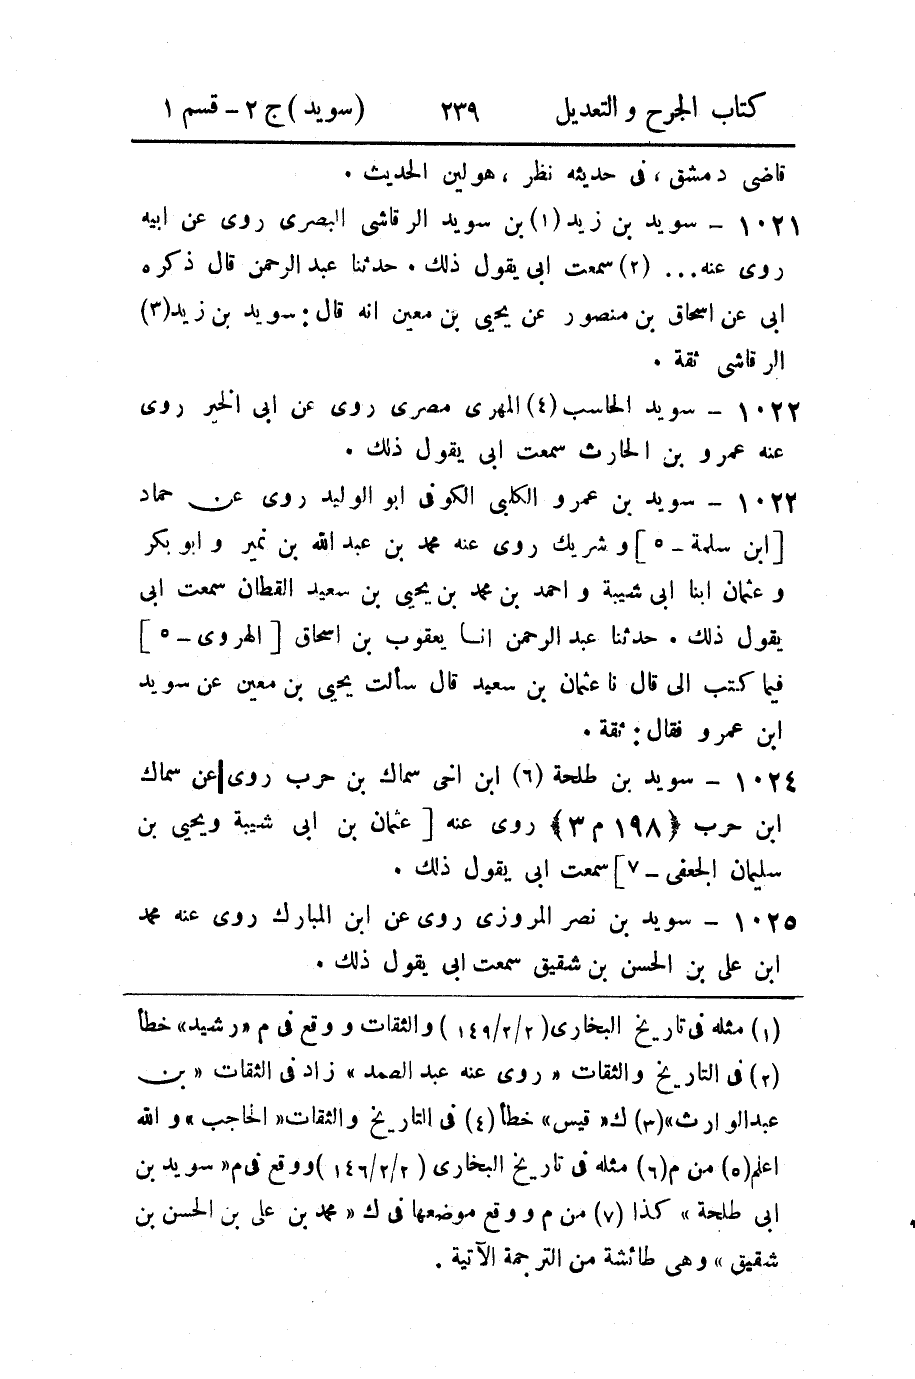 كتاب الجرح والتعديل ٢٣٩ (سويد) ج ٢ - قسم ١
قاضى دمشق ، فى حديثه نظر ، هو لين الحديث .
١٠٢١ - سويد بن زيد (١) بن سويد الرقاشى البصرى روى عن ابيه
روى عنه... (٢) سمعت ابى يقول ذلك . حدثنا عبد الرحمن قال ذكره
ابى عن اسحاق بن منصور عن يحيى بن معين انه قال : سويد بن زيد (٣)
الرقاشى ثقة .
١٠٢٢ - سويد الحاسب (٤) المهرى مصرى روى عن ابى الخير روى
عنه عمرو بن الحارث سمعت ابى يقول ذلك .
١٠٢٣ - سويد بن عمرو الكلبى الكوفى ابو الوليد روى عن حماد
[ ابن سلمة - ٥ ] و شريك روى عنه محمد بن عبد الله بن نمير و ابو بكر
و عثمان ابنا ابى شيبة و احمد بن محمد بن يحيى بن سعيد القطان سمعت ابى
يقول ذلك . حدثنا عبد الرحمن انا يعقوب بن اسحاق [ الهروى - ٥ ]
فيما كتب الى قال نا عثمان بن سعيد قال سألت يحيى بن معين عن سويد
ابن عمرو فقال : ثقة .
١٠٢٤ - سويد بن طلحة (٦) ابن اخى سماك بن حرب روى عن سماك
ابن حرب ﴿ ١٩٨ م ٣ ﴾ روى عنه [ عثمان بن ابى شيبة ويحيى بن
سليمان الجعفى - ٧ ] سمعت ابى يقول ذلك .
١٠٢٥ - سويد بن نصر المروزى روى عن ابن المبارك روى عنه محمد
ابن على بن الحسن بن شقيق سمعت ابى يقول ذلك .
(١) مثله فى تاريخ البخارى (١٤٩/٢/٢) والثقات ووقع فى م «رشيد» خطأ
(٢) فى التاريخ والثقات « روى عنه عبد الصمد » زاد فى الثقات « بن
عبد الوارث» (٣) ك « قيس » خطأ (٤) فى التاريخ والثقات « الحاجب » و الله
اعلم (٥) من م (٦) مثله فى تاريخ البخارى (١٤٦/٢/٢) ووقع فى م « سويد بن
ابى طلحة » كذا (٧) من م ووقع موضعها فى ك « محمد بن على بن الحسن بن
شقيق » وهى طائشة من الترجمة الآتية .